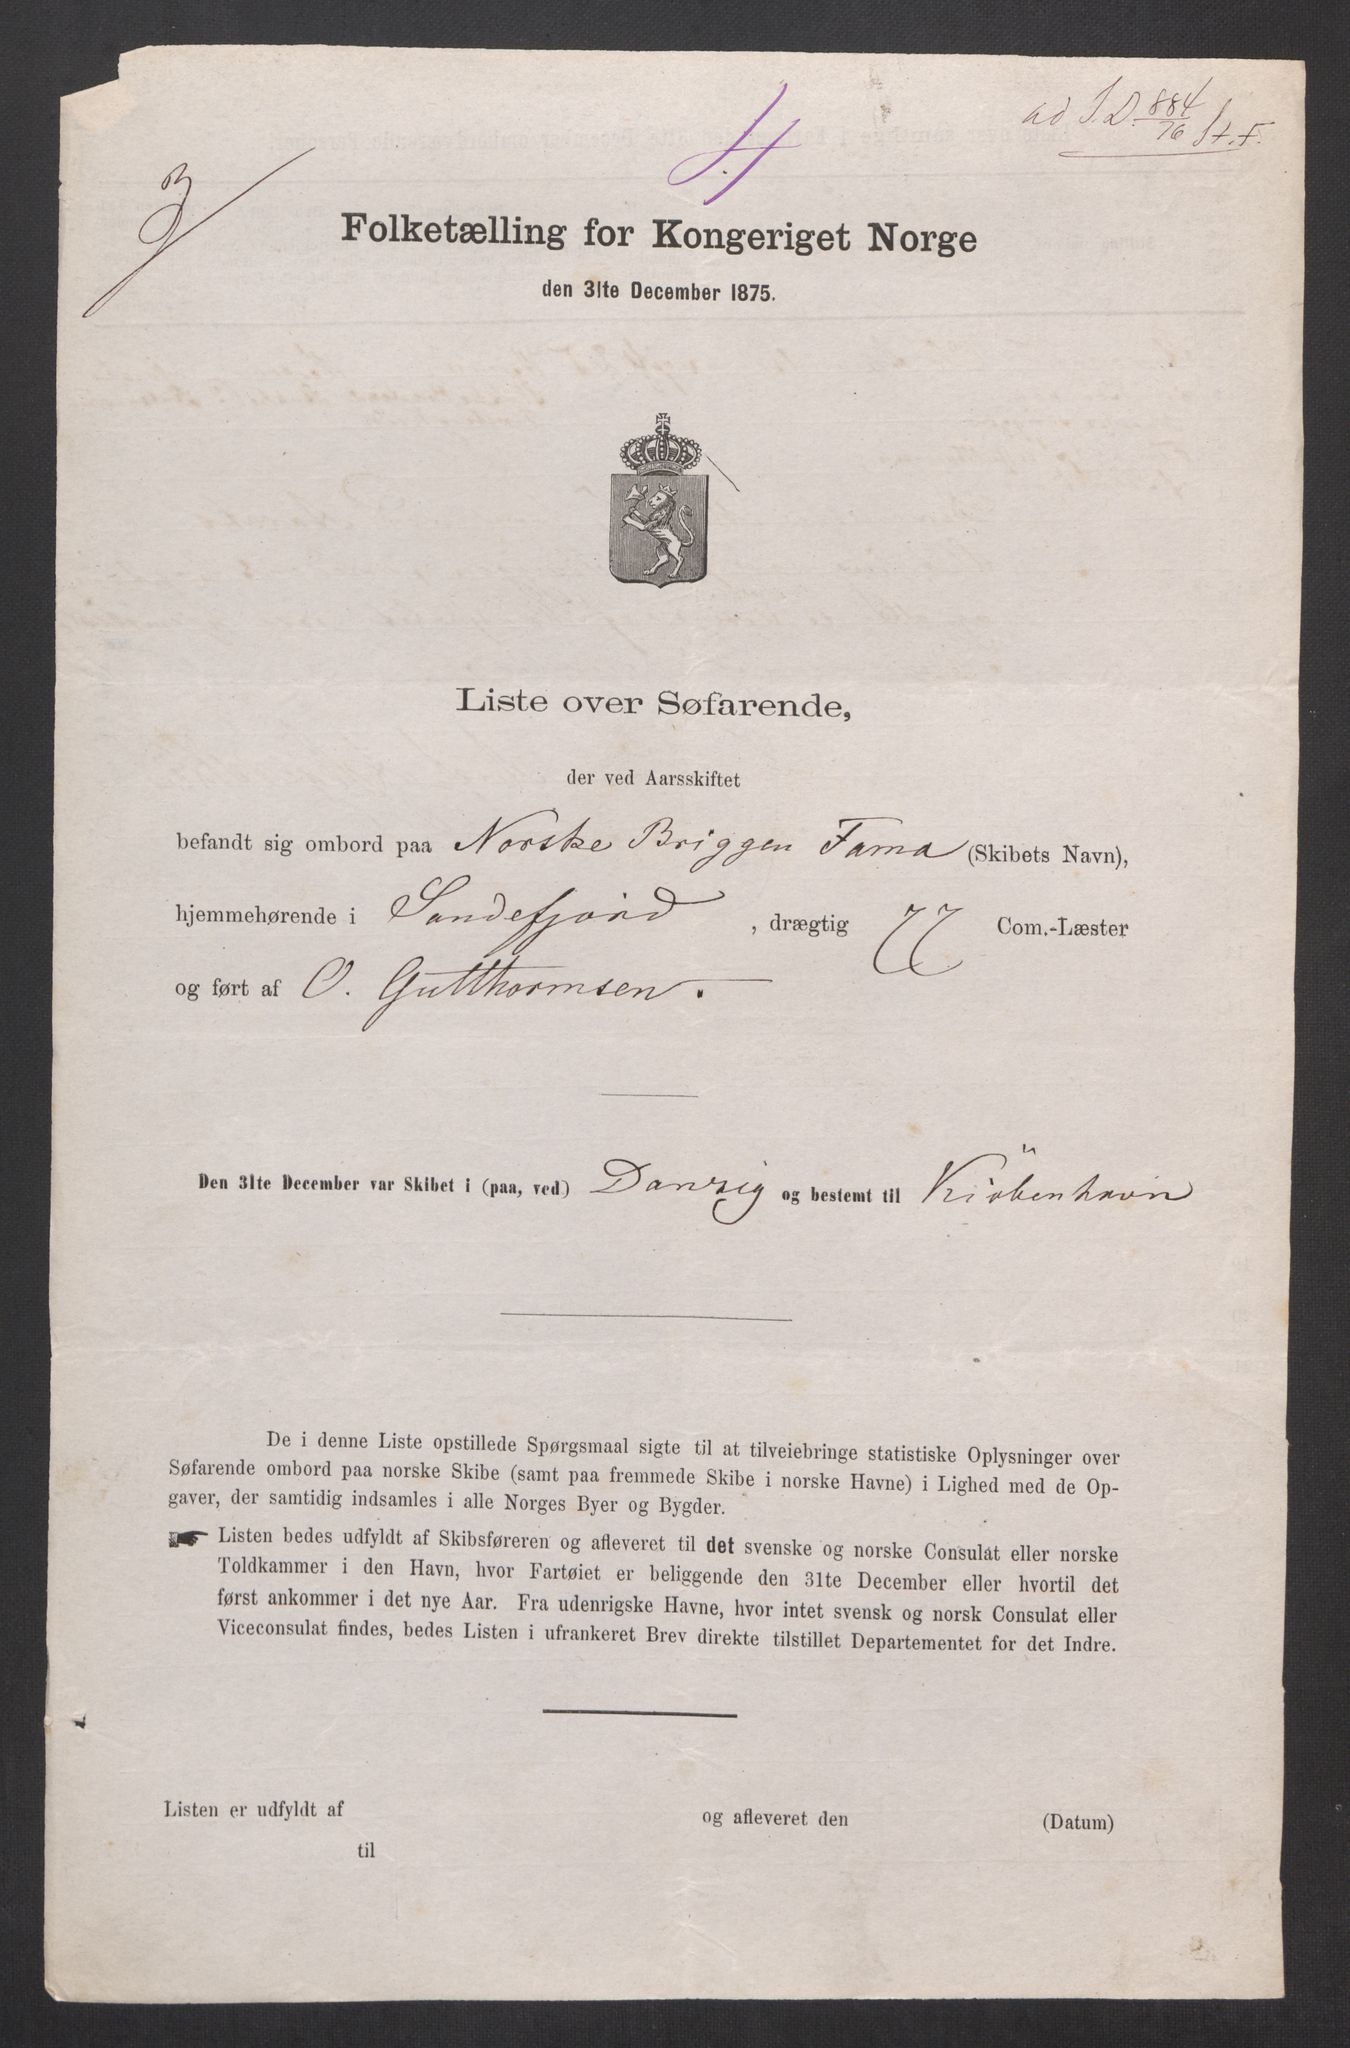 ad J.D. 884/76 St. F.
4
3
Folketælling for Kongeriget Norge
den 31te December 1875.
Liste over Søfarende,
der ved Aarsskiftet
befandt sig ombord paa Norske Briggen Fama (Skibets Navn),
hjemmehørende i Sandefjord, drægtig 77 Com.-Læster
og ført af O. Gutthormsen.
Den 31te December var Skibet i (paa, ved) Danzig og bestemt til Kiöbenhavn
De i denne Liste opstillede Spørgsmaal sigte til at tilveiebringe statistiske Oplysninger over
Søfarende ombord paa norske Skibe (samt paa fremmede Skibe i norske Havne) i Lighed med de Op-
gaver, der samtidig indsamles i alle Norges Byer og Bygder.
Listen bedes udfyldt af Skibsføreren og afleveret til det svenske og norske Consulat eller norske
Toldkammer i den Havn, hvor Fartøiet er beliggende den 31te December eller hvortil det
først ankommer i det nye Aar. Fra udenrigske Havne, hvor intet svensk og norsk Consulat eller
Viceconsulat findes, bedes Listen i ufrankeret Brev direkte tilstillet Departementet for det Indre.
Listen er udfyldt af og afleveret den (Datum)
til